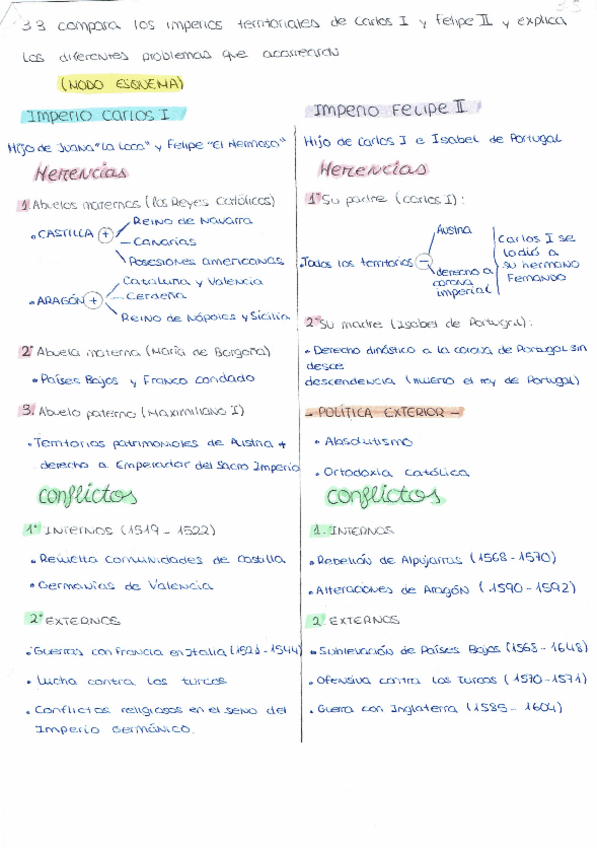 3.3
3.3 compara los imperios territoriales de Carlos I y Felipe II y explica
los diferentes problemas que acontecieron
(MODO ESQUEMA)
Imperio Carlos I
Hijo de Juana "La Loca" y Felipe "El Hermoso"
Herencias
1. Abuelos maternos (los Reyes Católicos)
• CASTILLA +
Reino de Navarra
- Canarias
Posesiones americanas
• ARAGÓN +
Cataluña y Valencia
Cerdeña
Reino de Nápoles y Sicilia
2º Abuela materna (María de Borgoña)
• Países Bajos y Franco condado
3. Abuelo paterno (Maximiliano I)
• Territorios patrimoniales de Austria +
derecho a Emperador del Sacro Imperio
Conflictos
1º INTERNOS (1519 - 1522)
• Revuelta comunidades de Castilla
• Germanías de Valencia
2º EXTERNOS
• Guerras con Francia en Italia (1521 - 1544)
• Lucha contra los turcos
• Conflictos religiosos en el seno del
Imperio Germánico.
Imperio Felipe II
Hijo de Carlos I e Isabel de Portugal
Herencias
1º Su padre (Carlos I):
• Todos los territorios -
Austria
derecho a
corona
imperial
Carlos I se
lo dio a
su hermano
Fernando
2º Su madre (Isabel de Portugal):
• Derecho dinástico a la corona de Portugal sin
desce
descendencia (muerto el rey de Portugal)
- POLÍTICA EXTERIOR -
• Absolutismo
• Ortodoxia Católica
Conflictos
1. INTERNOS
• Rebelión de Alpujarras (1568 - 1570)
• Alteraciones de Aragón (1590 - 1592)
2. EXTERNOS
• Sublevación de Países Bajos (1568 - 1648)
• Ofensiva contra los Turcos (1570 - 1571)
• Guerra con Inglaterra (1585 - 1604)